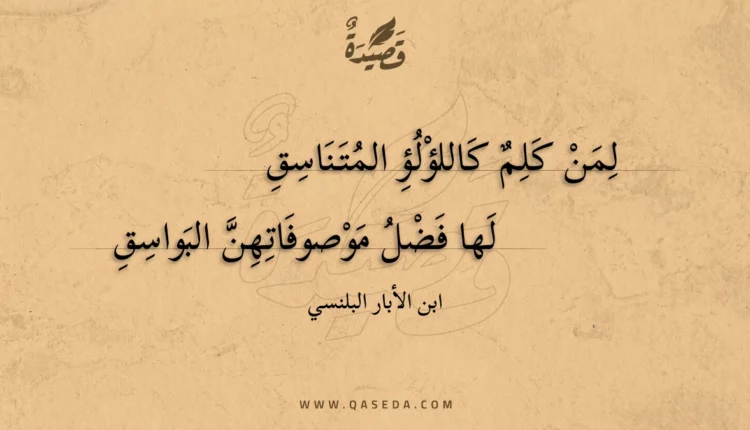 قَصِيْدَةٌ
لِمَنْ كَلِمٌ كَاللؤْلُؤِ المُتَنَاسِقِ
لَها فَضْلُ مَوْصوفَاتِهِنَّ البَواسِقِ
ابن الأبار البلنسي
WWW.QASEDA.COM